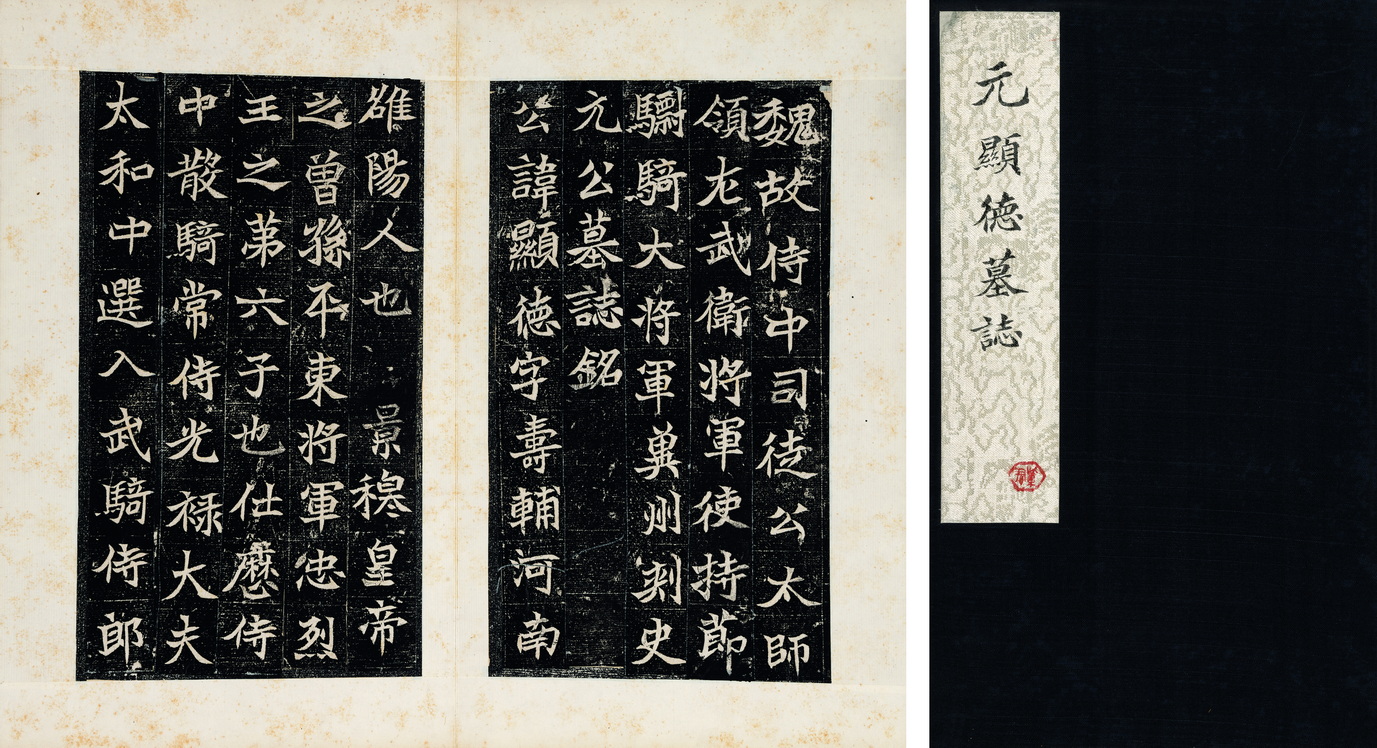 元顯徳墓誌
魏故侍中司徒公太師
領左武衛將軍使持節
驃騎大將軍冀州刾史
元公墓誌銘
公諱顯徳字壽輔河南
雒陽人也 景穆皇帝
之曽孫平東將軍忠烈
王之第六子也仕歷侍
中散騎常侍光禄大夫
太和中選入武騎侍郎